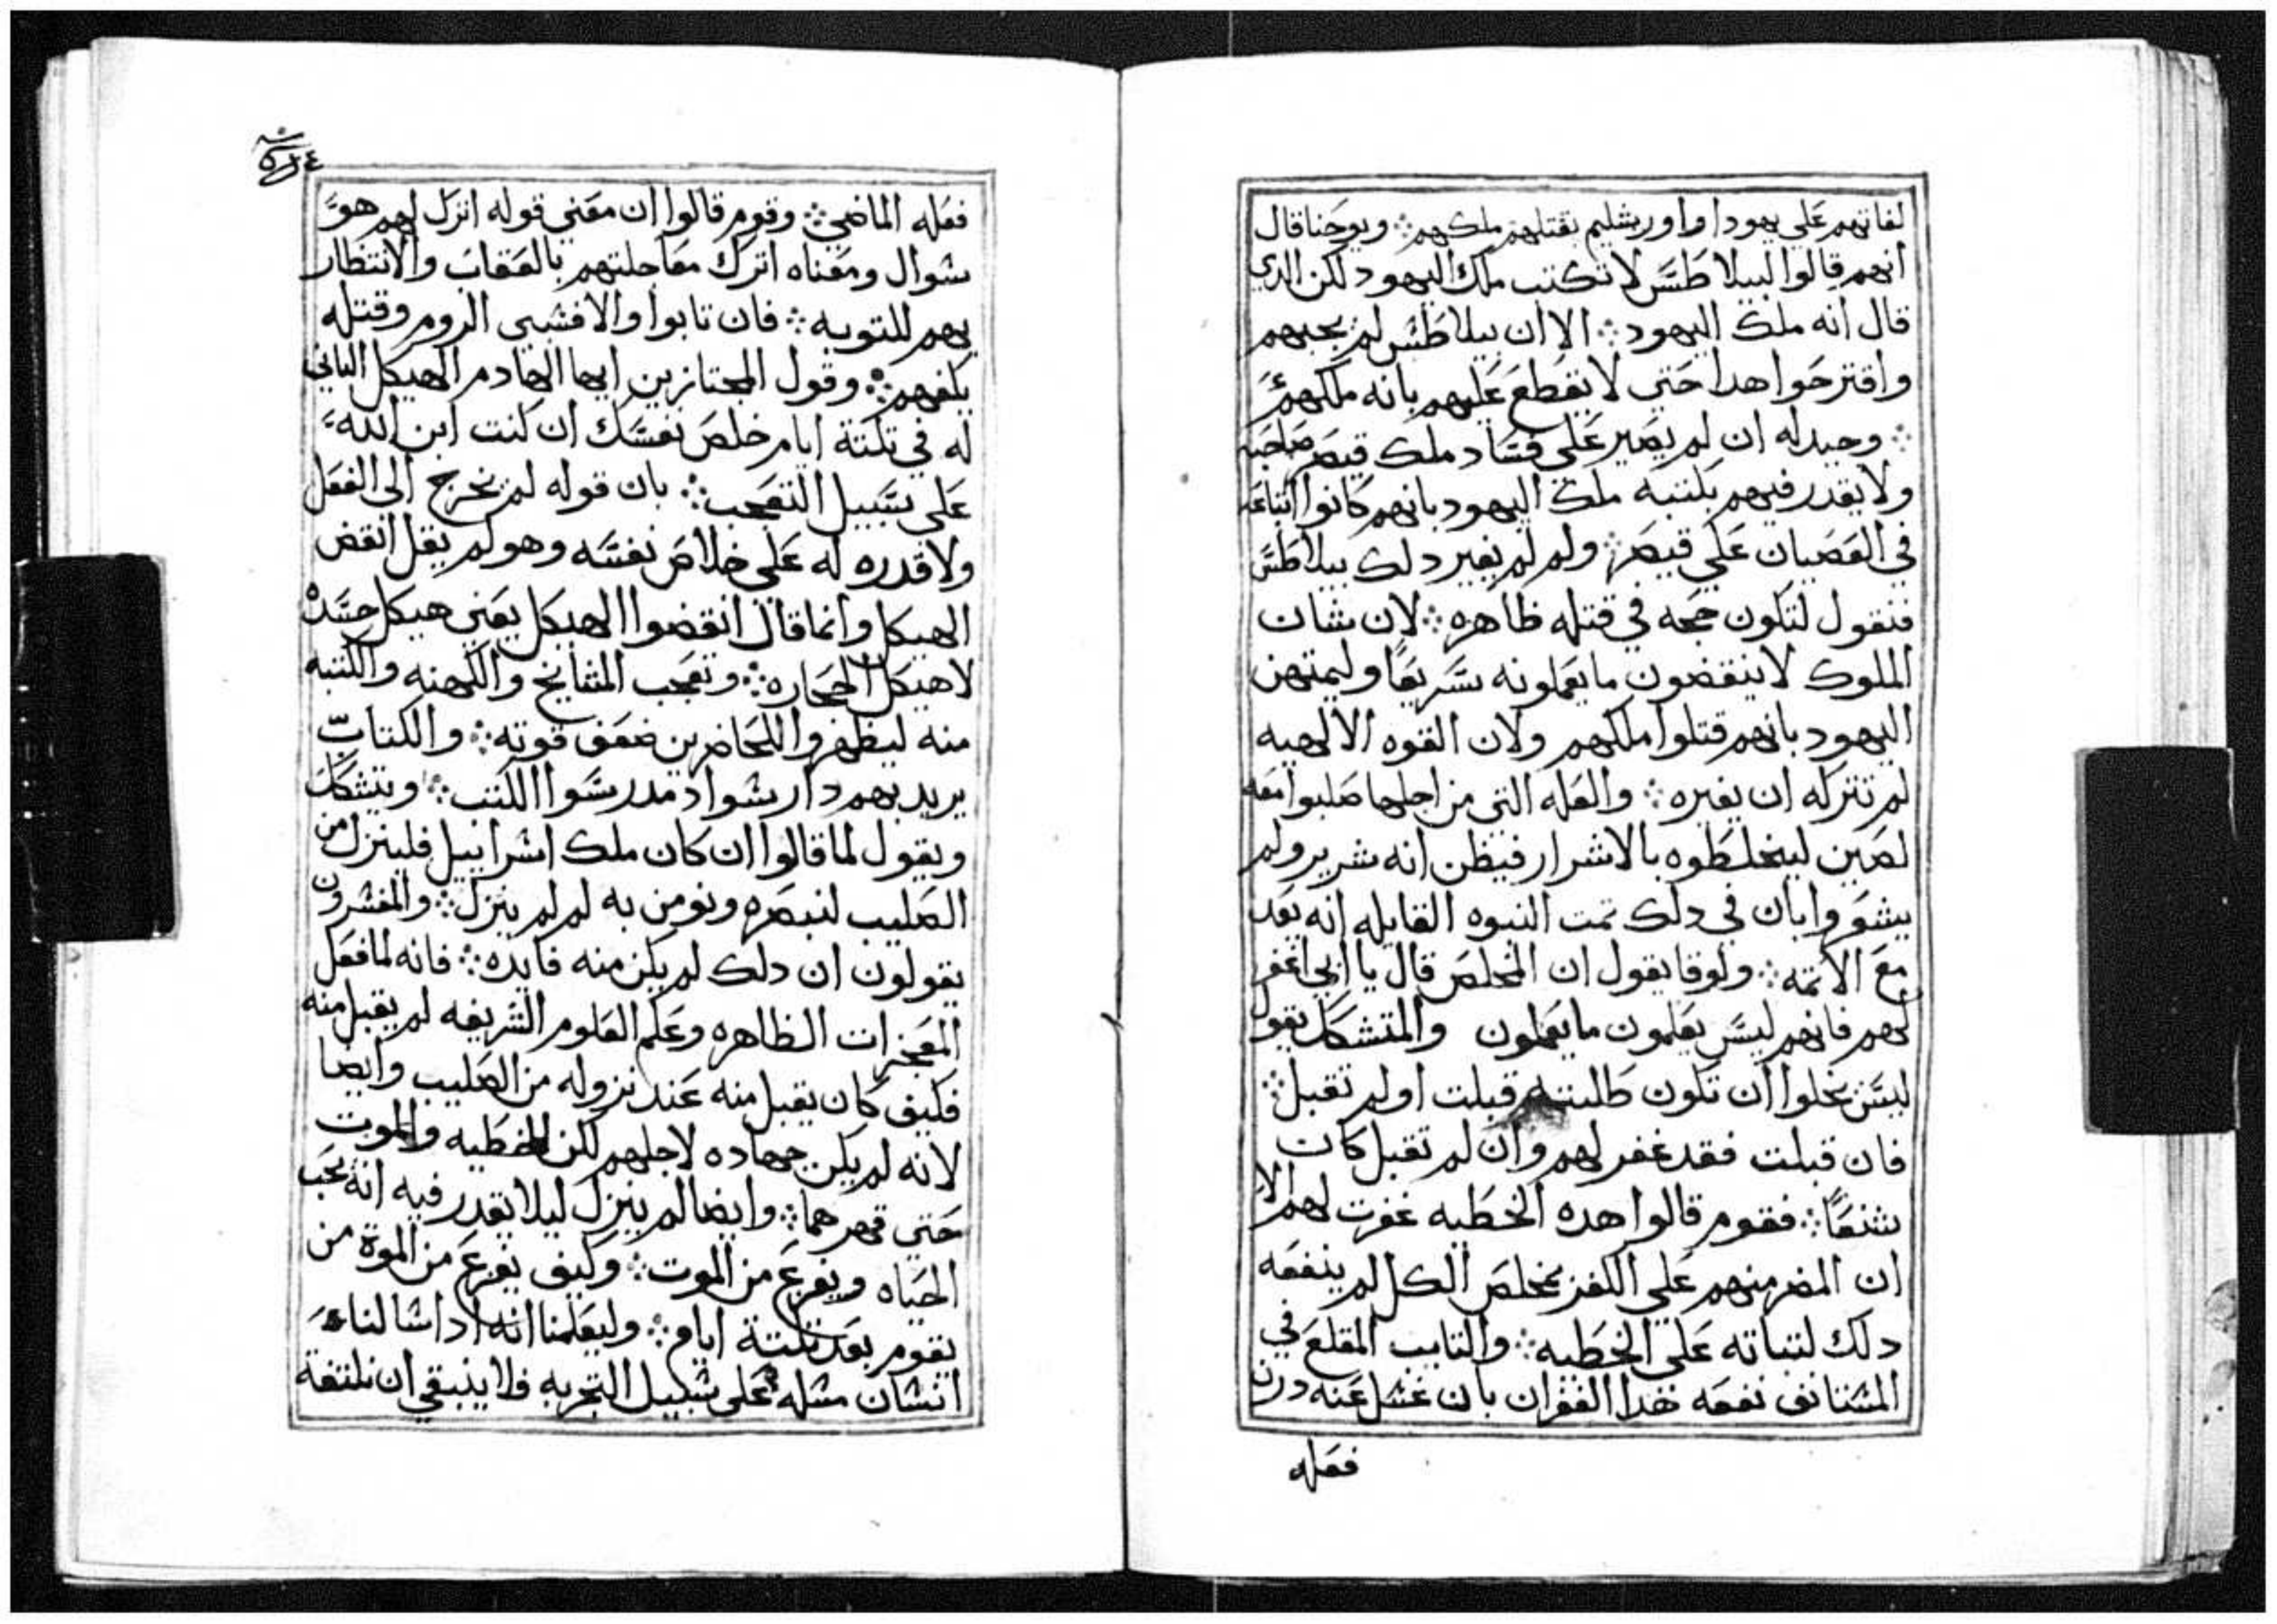 لفاتهم على يهودا واورشليم بقتلهم ملكهم ⁘ ويوحنا قال
انهم قالوا لبيلاطس لا تكتب ملك اليهود لكن الدي
قال انه ملك اليهود ⁘ الا ان بيلاطس لم يجبهم
واقترحوا هدا حتي لا يقطع عليهم بانه ملكهم
⁘ وحيد له ان لم يصير على فساد ملك قيصر صاحبه
ولا يقدر فيهم بكتبه ملك اليهود بانهم كانوا اتباعه
في العصيان علي قيصر ⁘ ولم لم يغير دلك بيلاطس
فنقول لتكون حجه في قتله ظاهره ⁘ لان شان
الملوك لا ينقضون ما يعملونه سريعًا وليمتهن
اليهود بانهم قتلوا ملكهم ولان القوه الالهيه
لم تتركه ان يغيره ⁘ والعله التي من اجلها صلبوا معه
لصين ليخلطوه بالاشرار فيظن انه شرير ولم
يشعروا بان في دلك تمت النبوه القايله انه يعد
مع الاتمه ⁘ ولوقا يقول ان المخلص قال يا ابي اغفر
لهم فانهم ليس يعلمون ما يعملون والمتشكك يقول
ليس يخلوا ان تكون طلبته قبلت او لم تقبل ⁘
فان قبلت فقد غفر لهم وان لم تقبل كان
شنعًا ⁘ فقوم قالوا هده الخطيه غفرت لهم الا
ان المضر منهم علي الكفر بمخلص الكل لم ينفعه
دلك لتباته علي الخطيه ⁘ والتايب المقلع في
المستانف نفعه هدا الغفران بان غسل عنه درن
فعله
فعله الماضي ⁘ وقوم قالوا ان معني قوله اترك لهم هو
سوال ومعناه اترك معاجلتهم بالعقاب والانتظار
بهم للتوبه ⁘ فان تابوا والا فسبي الروم وقتله
يلفهم ⁘ وقول المجتازين ايها الهادم الهيكل الباني
له في تلتة ايام خلص نفسك ان كنت ابن الله
على سبيل التعجب ⁘ بان قوله لم يخرج الى الفعل
ولا قدره له علي خلاص نفسه وهو لم يقل انقض
الهيكل وانما قال انقضوا الهيكل يعني هيكل جسده
لا هيكل الحجاره ⁘ وتعجب المشايخ والكهنه والكتبه
منه ليظهروا للحاضرين ضعف قوته ⁘ والكتاب
يريد بهم دارسوا ومدرسوا الكتب ⁘ ويتشكك
ويقول لما قالوا ان كان ملك اسراييل فلينزل من
الصليب لنبصره ونومن به لم لم ينزل ⁘ والمفسرون
يقولون ان دلك لم يكن منه فايده ⁘ فانه لما فعل
المعجزات الظاهره وعلم العلوم الشريفه لم يقبل منه
فكيف كان يقبل منه عند نزوله من الصليب وايضا
لانه لم يكن جهاده لاجلهم لكن للخطيه والموت
حتي قهرهما ⁘ وايضا لم ينزل ليلا يقدر فيه انه يحب
الحياه ويفزع من الموت ⁘ وكيف يفزع من الموة من
يقوم بعد تلتة ايام ⁘ وليعلمنا انه ادا سالنا
انسان مسله على سبيل التجربه فلا ينبقي ان نلتفة